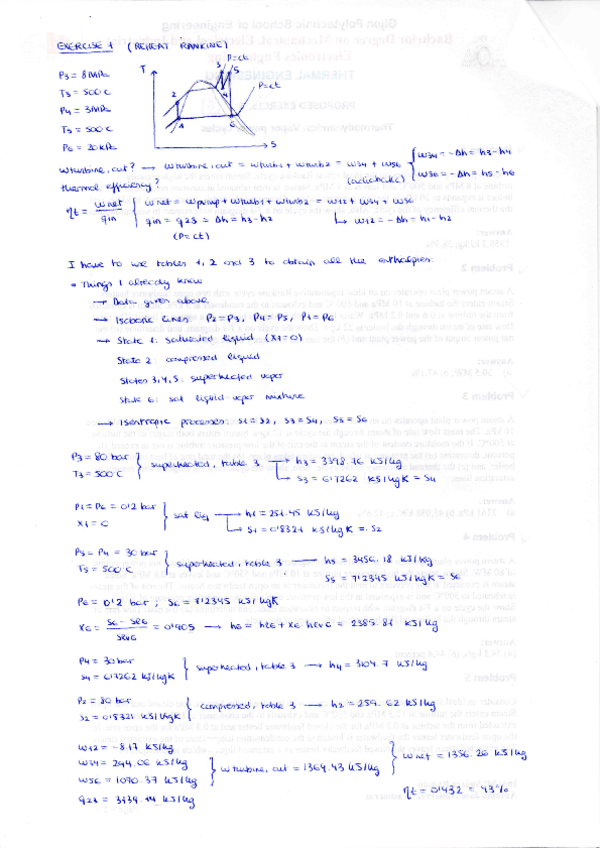 EXERCISE 1 (REHEAT RANKINE)
P3 = 8 MPa
T3 = 500°C
P4 = 3 MPa
T5 = 500°C
P6 = 20 kPa
T
P=ct
P=ct
1
2
3
4
5
6
S
Wturbine, out? → Wturbine, out = Wturb1 + Wturb2 = W34 + W56 { W34 = -Δh = h3-h4
(adiabatic) W56 = -Δh = h5-h6
thermal efficiency?
ηt = Wnet / qin { Wnet = Wpump + Wturb1 + Wturb2 = W12 + W34 + W56
qin = q23 = Δh = h3-h2 ↳ W12 = -Δh = h1-h2
(P=ct)
I have to use tables 1, 2 and 3 to obtain all the enthalpies:
• Things I already know
→ Data given above
→ Isobaric lines: P2=P3, P4=P5, P1=P6
→ State 1: saturated liquid (x1=0)
State 2: compressed liquid
States 3,4,5: superheated vapor
State 6: sat liquid-vapor mixture
→ Isentropic processes: s1=s2, s3=s4, s5=s6
P3 = 80 bar
T3 = 500°C } superheated, table 3 → h3 = 3398.76 kJ/kg
→ s3 = 6'7262 kJ/kgK = s4
P1 = P6 = 0'2 bar
x1 = 0 } sat liq → h1 = 251.45 kJ/kg
→ s1 = 0'8321 kJ/kgK = s2
P5 = P4 = 30 bar
T5 = 500°C } superheated, table 3 → h5 = 3456.18 kJ/kg
s5 = 7'2345 kJ/kgK = s6
P6 = 0'2 bar ; s6 = 7'2345 kJ/kgK
x6 = s6 - sℓ6 / sℓv6 = 0'905 → h6 = hℓ6 + x6 hℓv6 = 2385.81 kJ/kg
P4 = 30 bar
s4 = 6'7262 kJ/kgK } superheated, table 3 → h4 = 3104.7 kJ/kg
P2 = 80 bar
s2 = 0'8321 kJ/kgK } compressed, table 3 → h2 = 259.62 kJ/kg
W12 = -8.17 kJ/kg
W34 = 294.06 kJ/kg
W56 = 1070.37 kJ/kg
q23 = 3139.14 kJ/kg
} Wturbine, out = 1364.43 kJ/kg
} Wnet = 1356.26 kJ/kg
ηt = 0'432 = 43%